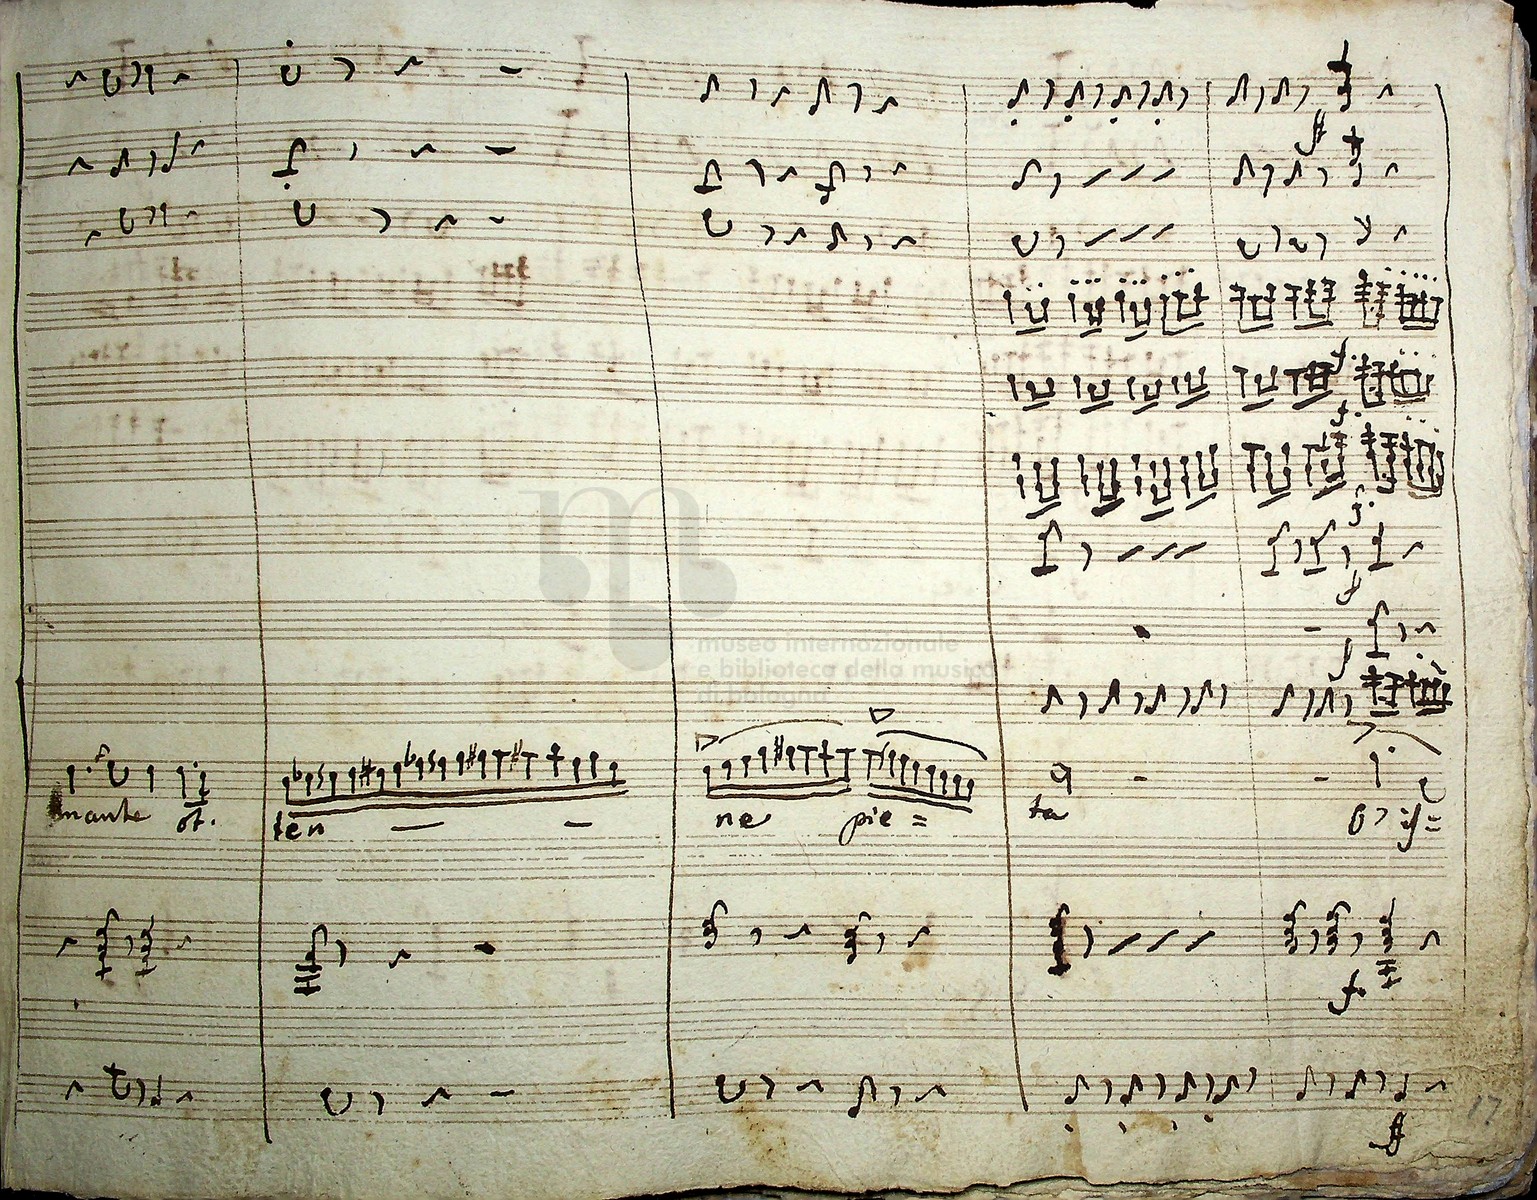 museo internazionale
e biblioteca della musica
di bologna
mante ot. ten — – ne pie = ta
17